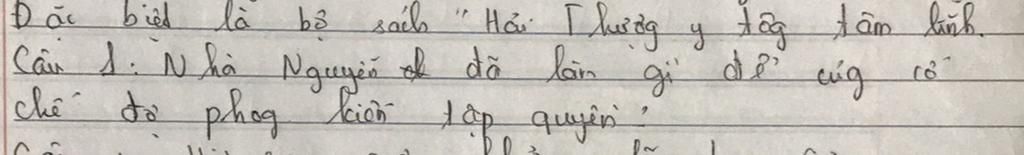 Đặc biệt là bộ sách "Hải Thượng y tôg tâm lĩnh.
Câu 1: Nhà Nguyễn đã làm gì để cúg cố
chế độ phog kiến tập quyền?